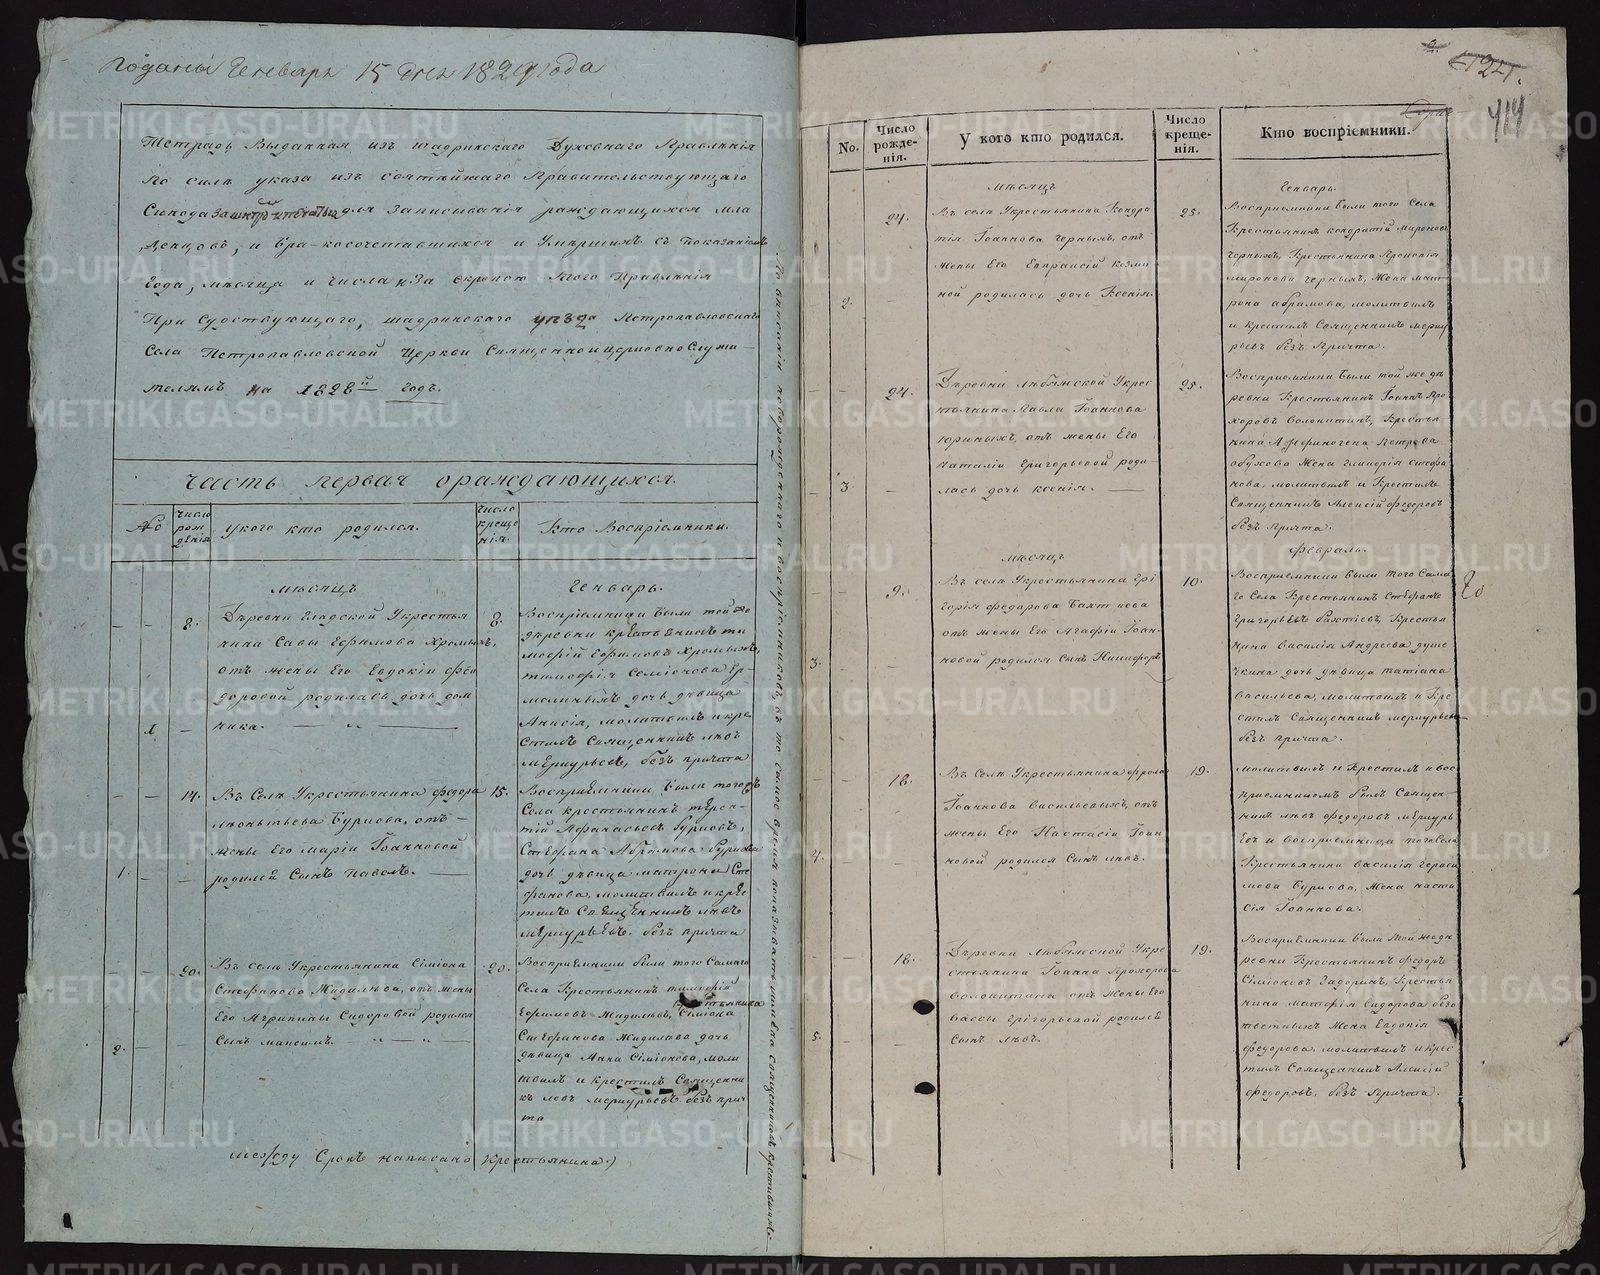 Поданы Генваря 15 дня 1829 года
Тетрадь Выданная изъ шадринскаго Духовнаго Правленія
По силѣ указа изъ святѣйшаго Правительствующаго
Синода для записыванія раждающихся мла
денцовъ, и бракосочетавшихся и Умершихъ съ показаніемъ
Года, мѣсяца и числа За скрепою Правленія
Присудствующаго, шадринскаго уѣзда Петропавловскаго
Села Петропавловской Церкви Священно и церковно Служи
телямъ на 1828й годъ.
Часть первая о раждающихся.
№
число рож денія
У кого кто родился.
число креще нія.
Кто Воспріемники.
мѣсяцъ Генварь.
1
8.
Деревни Гладской У крестья
нина Савы Ефимова Хромыхъ,
отъ жены Его Евдокіи Фео
доровой родилась дочь дом
ника.
8.
Воспріемники были той же
деревни крестьянинъ ти
мофій Ефимовъ Хромыхъ,
тимофія Семіонова Ер
молиныхъ дочь девица
Анисія, молитвилъ и кре
стилъ Священникъ левъ
меркурьевъ, безъ причта
1.
14.
Въ Селѣ У крестьянина Федора
леонтьева Буркова, отъ
жены Его маріи Іоанновой
родился Сынъ Павелъ.
15.
Воспріемники были того же
Села крестьянинъ
Афанасьевъ Бурковъ,
Стефана Абрамова Буркова
дочь девица матрона Сте
фанова, молитвилъ и кре
стилъ Священникъ левъ
меркурьевъ. безъ причта
2.
20.
Въ селѣ У крестьянина Сіміона
Стефанова Жидилева, отъ жены
Его Агрипины Сидоровой родился
Сынъ максимъ.
20.
Воспріемники были того Самаго
Села Крестьянинъ тимофій
крестьянина
Ефимовъ Жидилевъ, Сіміона
Стефанова Жидилева дочь
девица Анна Сіміонова, моли
твилъ и крестилъ Священни
къ левъ меркурьевъ безъ прич
та
Между Срокъ написано Крестьянина.)
№.
Число рожде- нія.
У кого кто родился.
Число креще- нія.
Кто воспріемники.
414
мѣсяцъ Генварь.
2.
24.
Въ селѣ У крестьянина Кондра
тія Іоаннова Черныхъ, отъ
жены Его Евпраксіи козми
ной родилась дочь Ксенія.
25.
Воспріемники были того Села
Крестьянинъ кондратій мироновъ
Черныхъ, Крестьянина Прокопія
миронова Черныхъ, Жена мат
рона абрамова, молитвилъ
и крестилъ Священникъ мерку
рьевъ безъ Причта.
3.
24.
Деревни Любимской У крес
тьянина Павла Іоаннова
Юриныхъ, отъ жены Его
наталіи Григорьевой роди
лась дочь ксенія.
25.
Воспріемники были той же де
ревни Крестьянинъ Іоаннъ Про
хоровъ Волокитинъ, Крестья
нина Афиногена Петрова
обухова Жена Гликерія стефа
нова, молитвилъ и Крестилъ
Священникъ Алексій Федоровъ
безъ Причта.
мѣсяцъ Февраль.
3.
9.
Въ селѣ У крестьянина Гри
горія Федорова Бахтиева
отъ жены Его Агафіи Іоан
новой родился Сынъ Никифоръ
10.
Воспріемники были того Сама
го Села Крестьянинъ Стефанъ
Григорьевъ Бахтіевъ, Крестья
нина Василія Андреева
дочь девица татіана
васильева, молитвилъ и Кре
стилъ Священникъ меркурьевъ
безъ причта.
4.
18.
Въ Селѣ У крестьянина Фрола
Іоаннова Васильевыхъ, отъ
жены Его Настасіи Іоан
новой родился Сынъ левъ.
19.
молитвилъ и Крестилъ и вос
пріемникомъ былъ Священ
никъ левъ Федоровъ меркурь
евъ и воспріемница того Села
Крестьянина Василія Гераси
мова Буркова, Жена наста
сія Іоаннова.
5.
18.
Деревни Любимской У кре
стьянина Іоанна Прохорова
Волокитина отъ Жены Его
Вассы Григорьевой родился
Сынъ левъ.
19.
Воспріемники были той же де
ревни Крестьянинъ Федоръ
Сіміоновъ Задоринъ, Крестья
нина матфія Сидорова
Жена Евдокія
федорова, молитвилъ и крес
тилъ Священникъ Алексій
Федоровъ, безъ Причта.